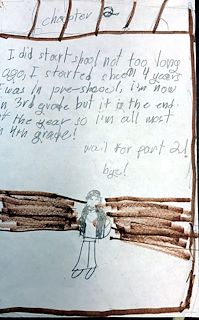 chapter 2
I did start shool not too long
ago, I started 4 years
I was in pre-shool, i'm now
in 3rd grade but it is the end
of the year so i'm all most
in 4th grade!
wait for part 2!
bye!